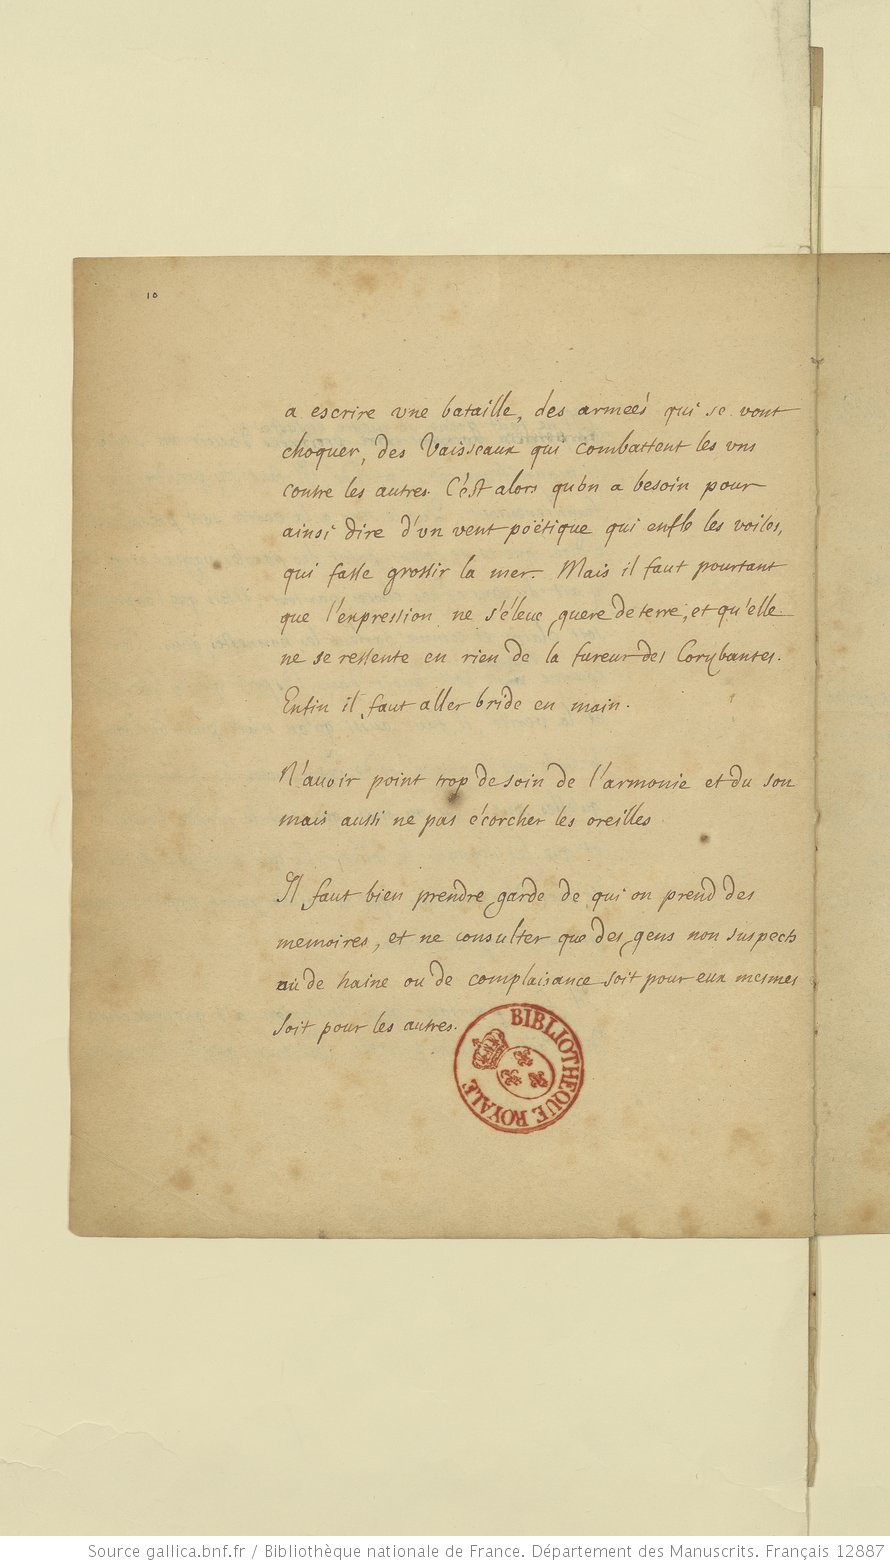 10
a escrire vne bataille, des armeés qui se vont
choquer, des Vaisseaux qui combattent les vns
contre les autres. C'ést alors qu'on a besoin pour
ainsi dire d'vn vent poëtique qui enfle les voiles,
qui fasse grossir la mer. Mais il faut pourtant
que l'expression ne s'éleue guere de terre, et qu'elle
ne se ressente en rien de la fureur des Corybantes.
Enfin il faut aller bride en main.
N'auoir point trop de soin de l'armonie et du son
mais aussi ne pas écorcher les oreilles.
Il faut bien prendre garde de qui on prend des
memoires, et ne consulter que des gens non suspects
ni de haine ou de complaisance soit pour eux mesmes
soit pour les autres.
BIBLIOTHEQUE ROYALE
Source gallica.bnf.fr / Bibliothèque nationale de France. Département des Manuscrits. Français 12887